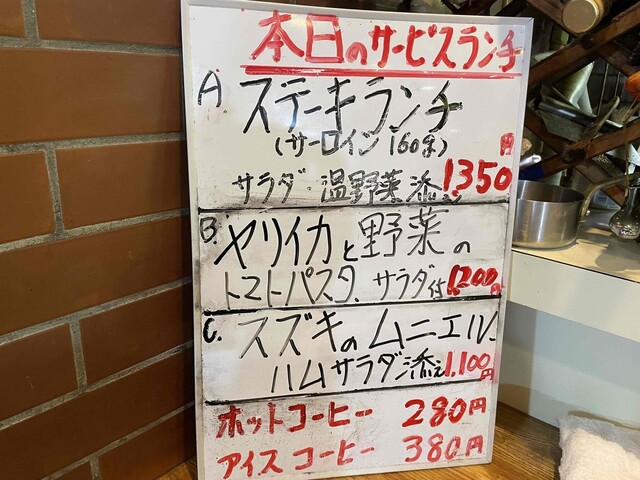 本日のサービスランチ
A ステーキランチ
(サーロイン 160g)
サラダ・温野菜 添え 1350円
B. ヤリイカと野菜の
トマトパスタ、サラダ付 1200円
C. スズキのムニエル、
ハムサラダ添え 1,100円
ホットコーヒー 280円
アイスコーヒー 380円